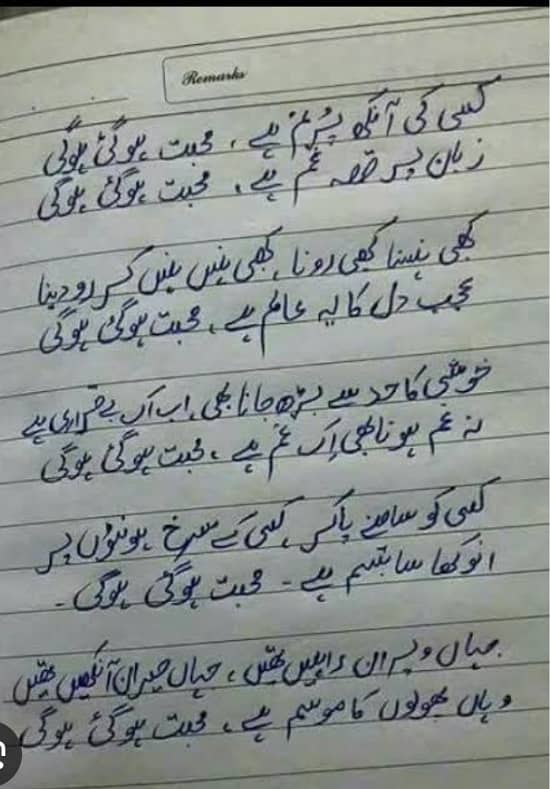 Remarks
کسی کی آنکھ پُرنم ہے، محبت ہوگئی ہوگی
زبان پر قصہ غم ہے، محبت ہوگئی ہوگی
کبھی ہنسنا کبھی رونا، کبھی ہنس ہنس کر رو دینا
عجب دل کا یہ عالم ہے، محبت ہوگئی ہوگی
خوشی کا حد سے بڑھ جانا بھی، اب اک بے قراری ہے
نہ غم ہونا بھی اِک غم ہے، محبت ہوگئی ہوگی
کسی کو سامنے پاکر، کسی کے سرخ ہونٹوں پر
انوکھا سا تبسم ہے۔ محبت ہوگئی ہوگی۔
جہاں ویران راہیں تھیں، جہاں حیران آنکھیں تھیں
وہاں پھولوں کا موسم ہے، محبت ہوگئی ہوگی